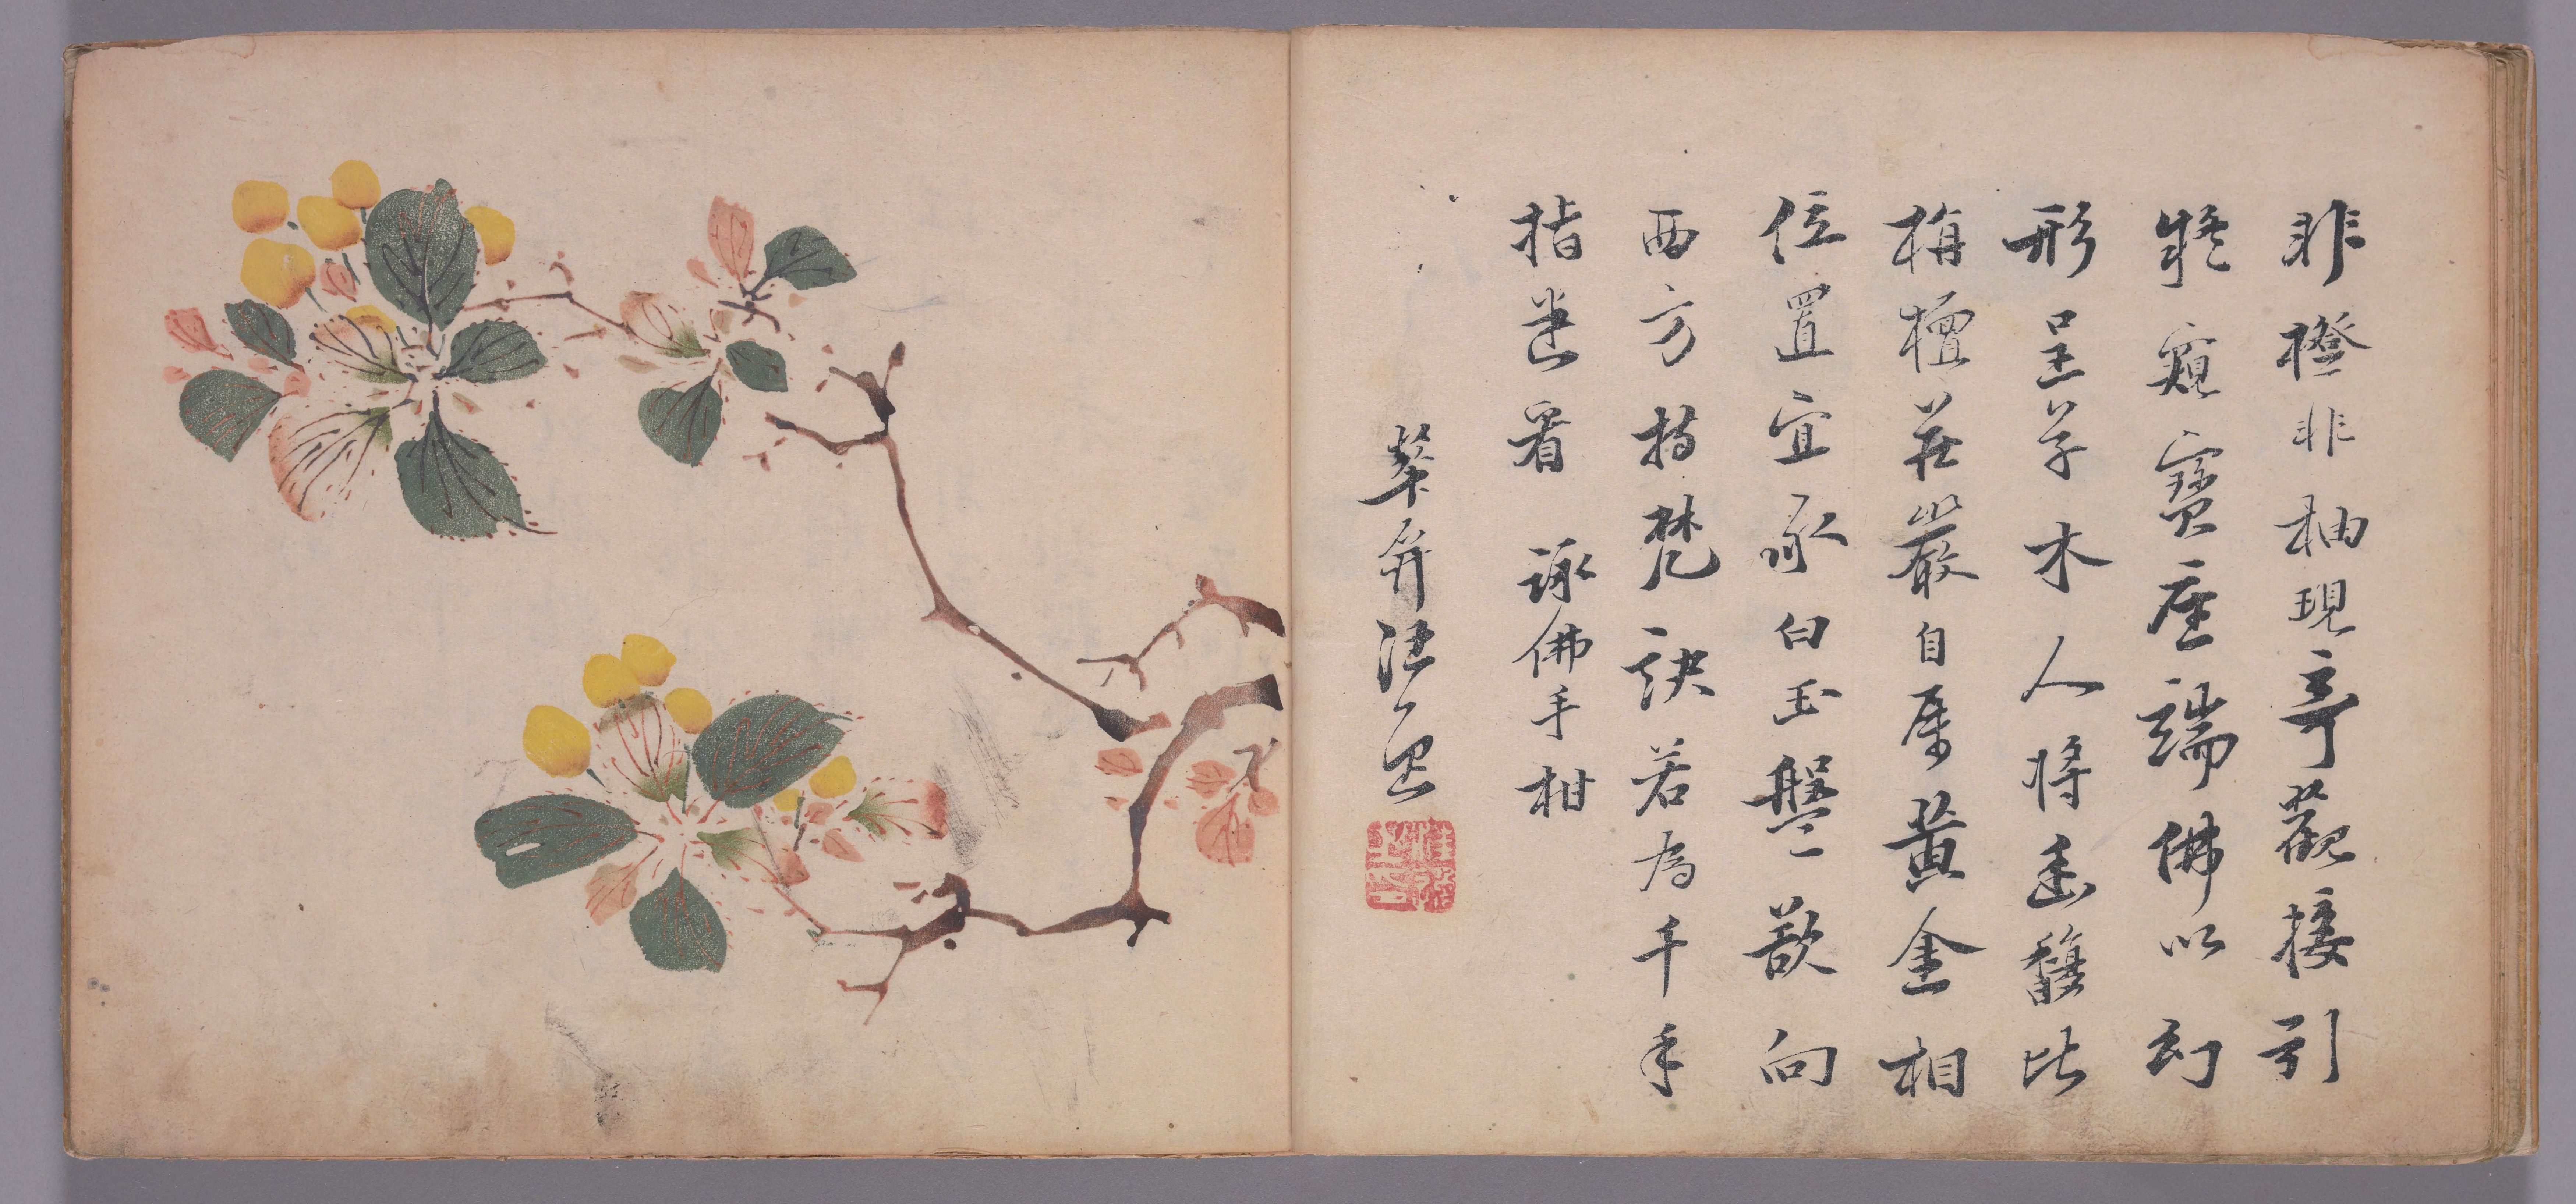 非橙非柚現奇觀接引
疑窺寶座端佛以幻
形呈草木人將馥比
栴檀莊嚴自屬黃金相
位置宜承白玉盤向
西方持梵訣若為千手
指迷看 詠佛手柑
屏